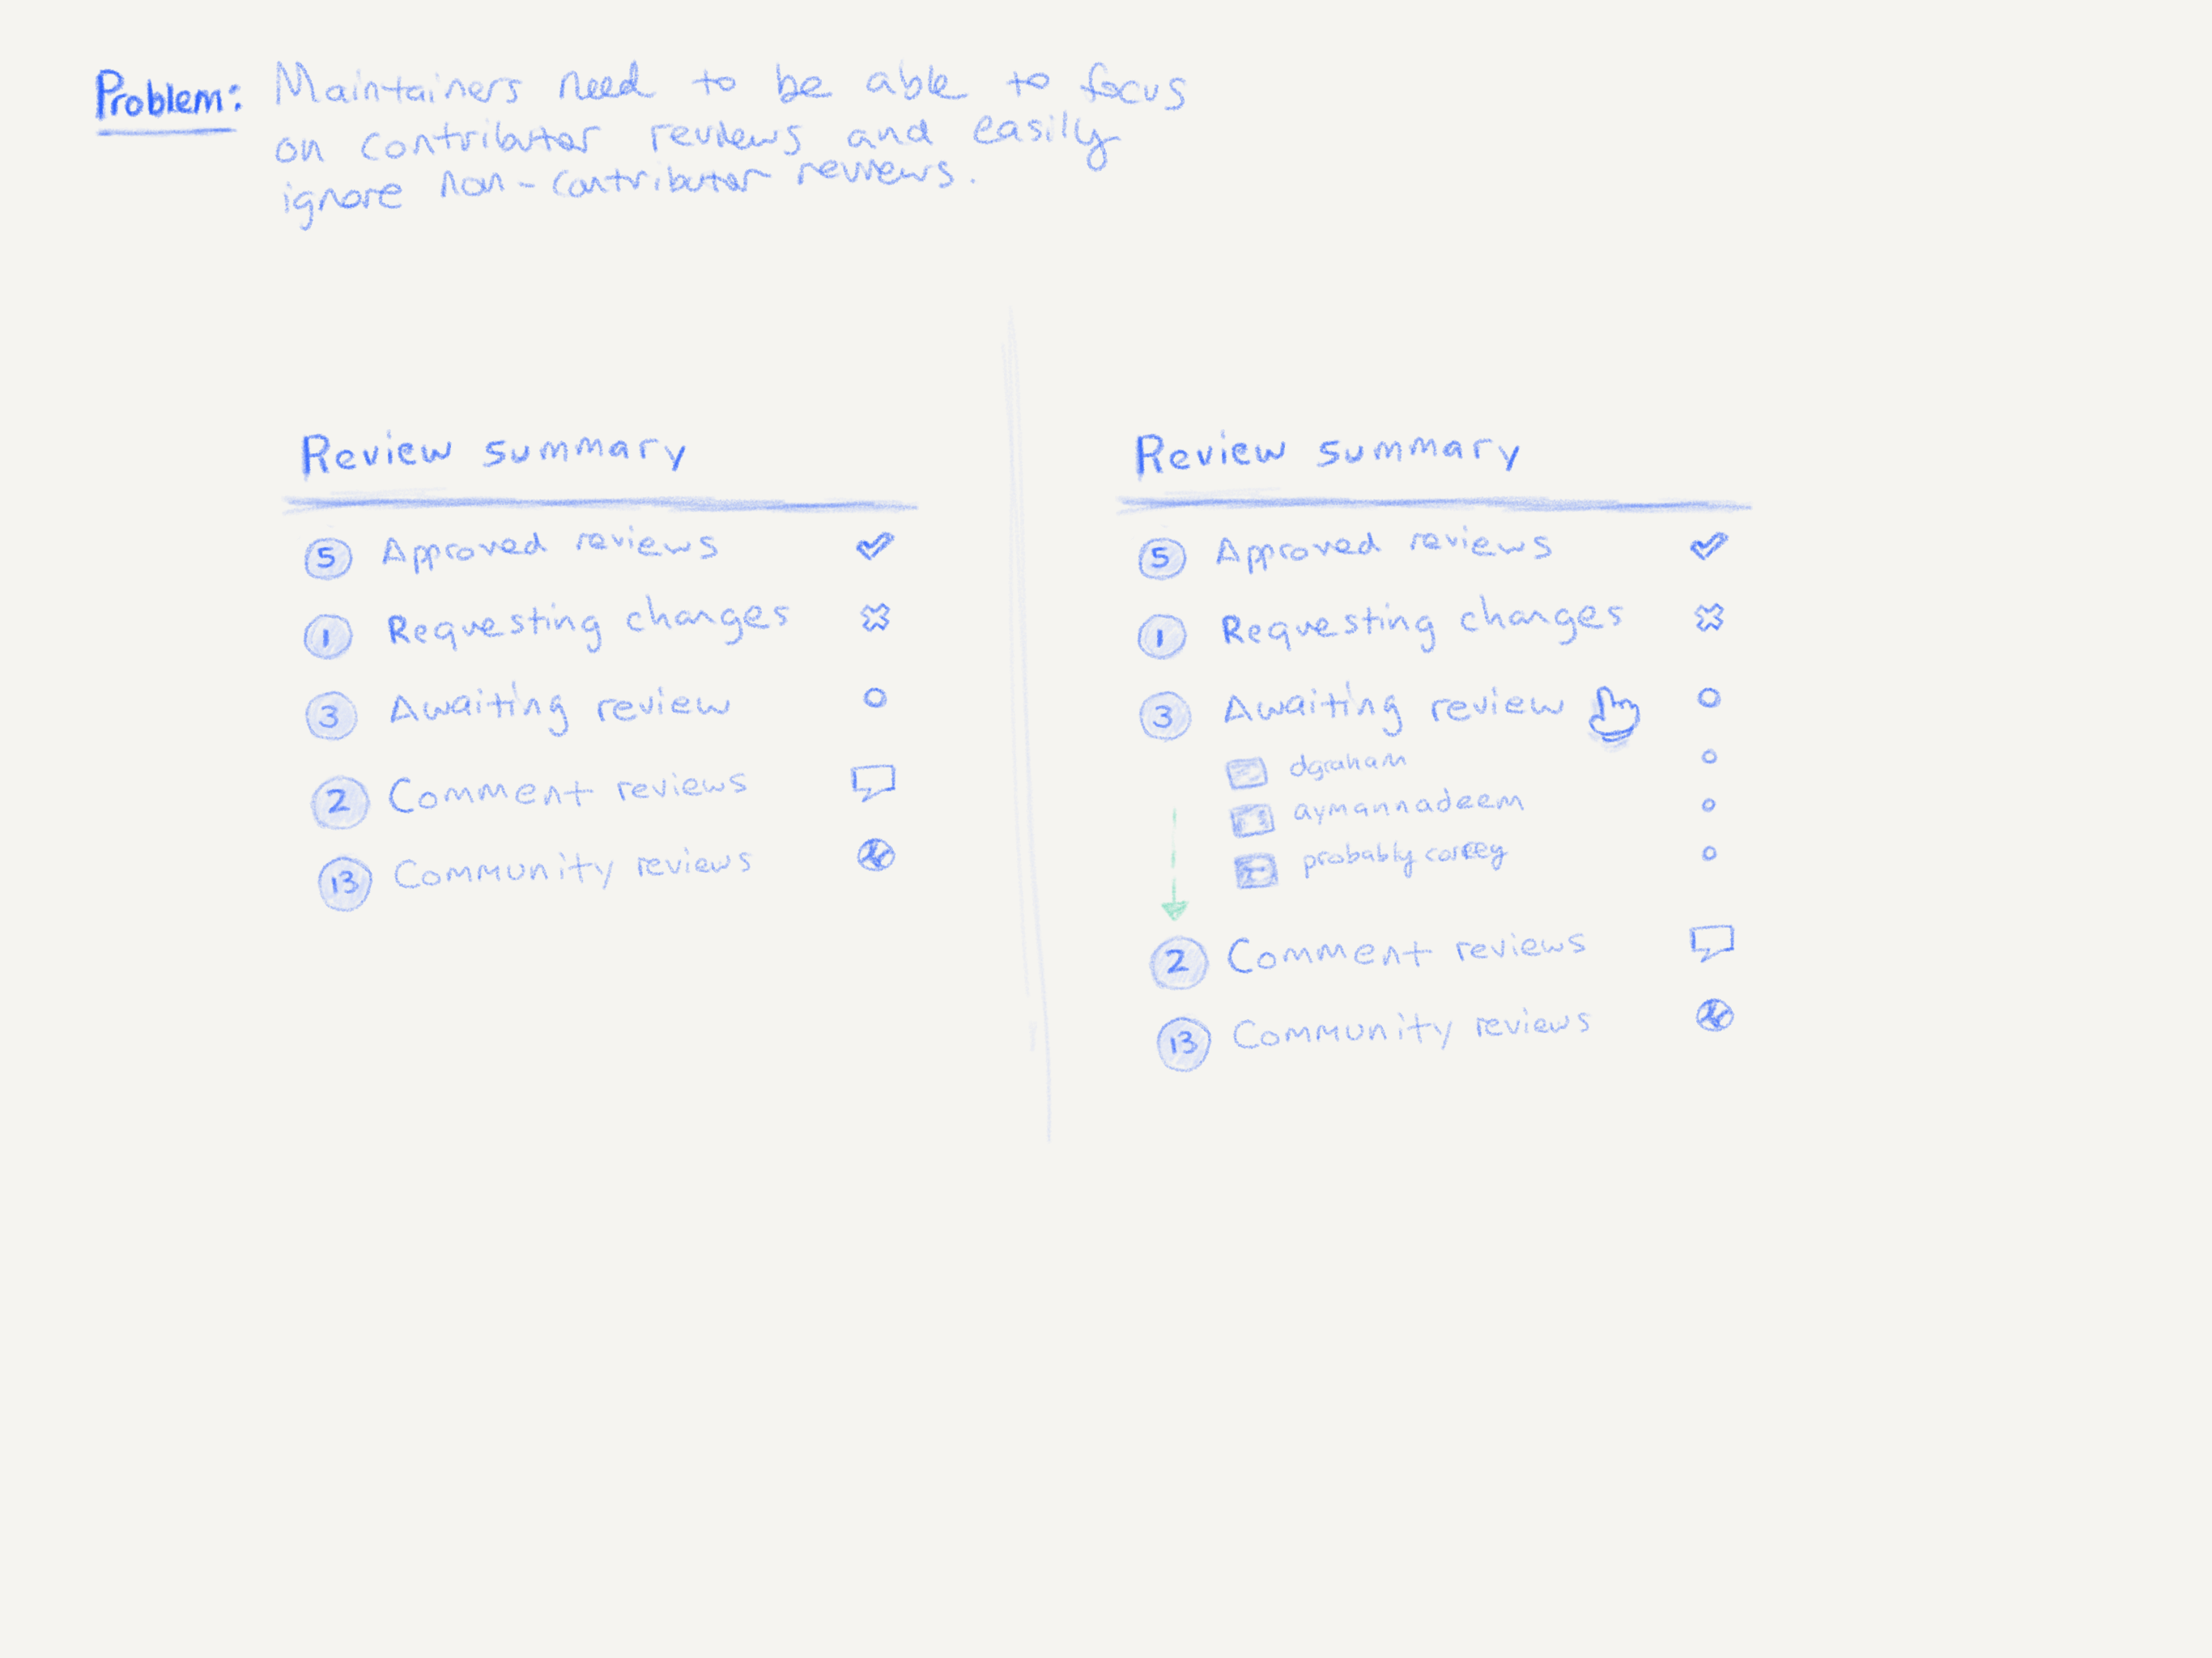 Problem: Maintainers need to be able to focus
on contributor reviews and easily
ignore non-contributor reviews.
Review summary
5 Approved reviews
1 Requesting changes
3 Awaiting review
2 Comment reviews
13 Community reviews
Review summary
5 Approved reviews
1 Requesting changes
3 Awaiting review
dgraham
aymannadeem
probablycorey
2 Comment reviews
13 Community reviews